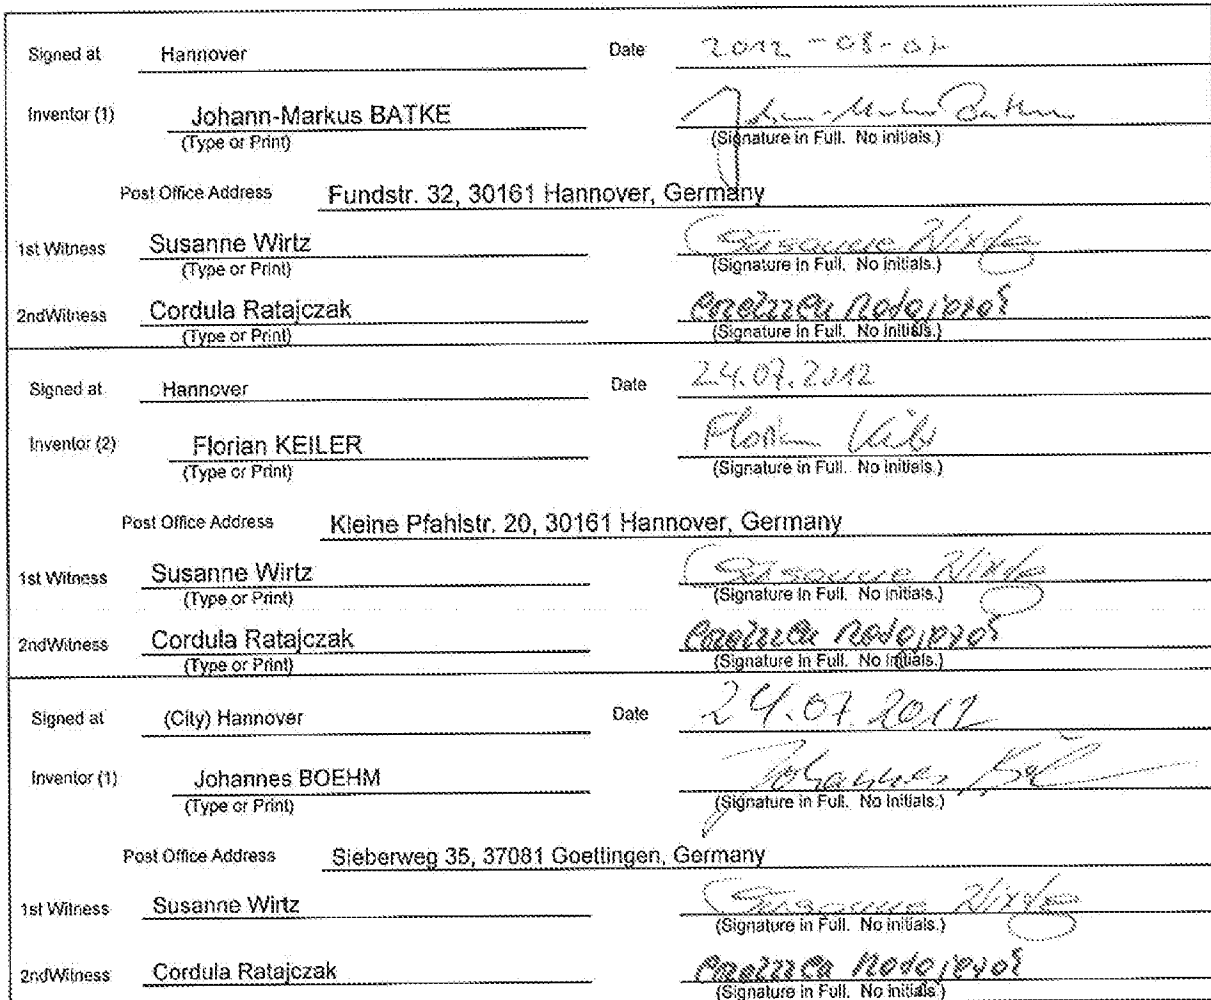 Signed at Hannover Date 2012-08-02
Inventor (1) Johann-Markus BATKE Johann-Markus Batke
(Type or Print) (Signature in Full. No initials.)
Post Office Address Fundstr. 32, 30161 Hannover, Germany
1st Witness Susanne Wirtz Susanne Wirtz
(Type or Print) (Signature in Full. No initials.)
2ndWitness Cordula Ratajczak
(Type or Print) (Signature in Full. No initials.)
Signed at Hannover Date 24.07.2012
Inventor (2) Florian KEILER Florian Keiler
(Type or Print) (Signature in Full. No initials.)
Post Office Address Kleine Pfahlstr. 20, 30161 Hannover, Germany
1st Witness Susanne Wirtz Susanne Wirtz
(Type or Print) (Signature in Full. No initials.)
2ndWitness Cordula Ratajczak
(Type or Print) (Signature in Full. No initials.)
Signed at (City) Hannover Date 24.07.2012
Inventor (1) Johannes BOEHM Johannes
(Type or Print) (Signature in Full. No initials.)
Post Office Address Sieberweg 35, 37081 Goettingen, Germany
1st Witness Susanne Wirtz Susanne Wirtz
(Signature in Full. No initials.)
2ndWitness Cordula Ratajczak
(Signature in Full. No initials.)